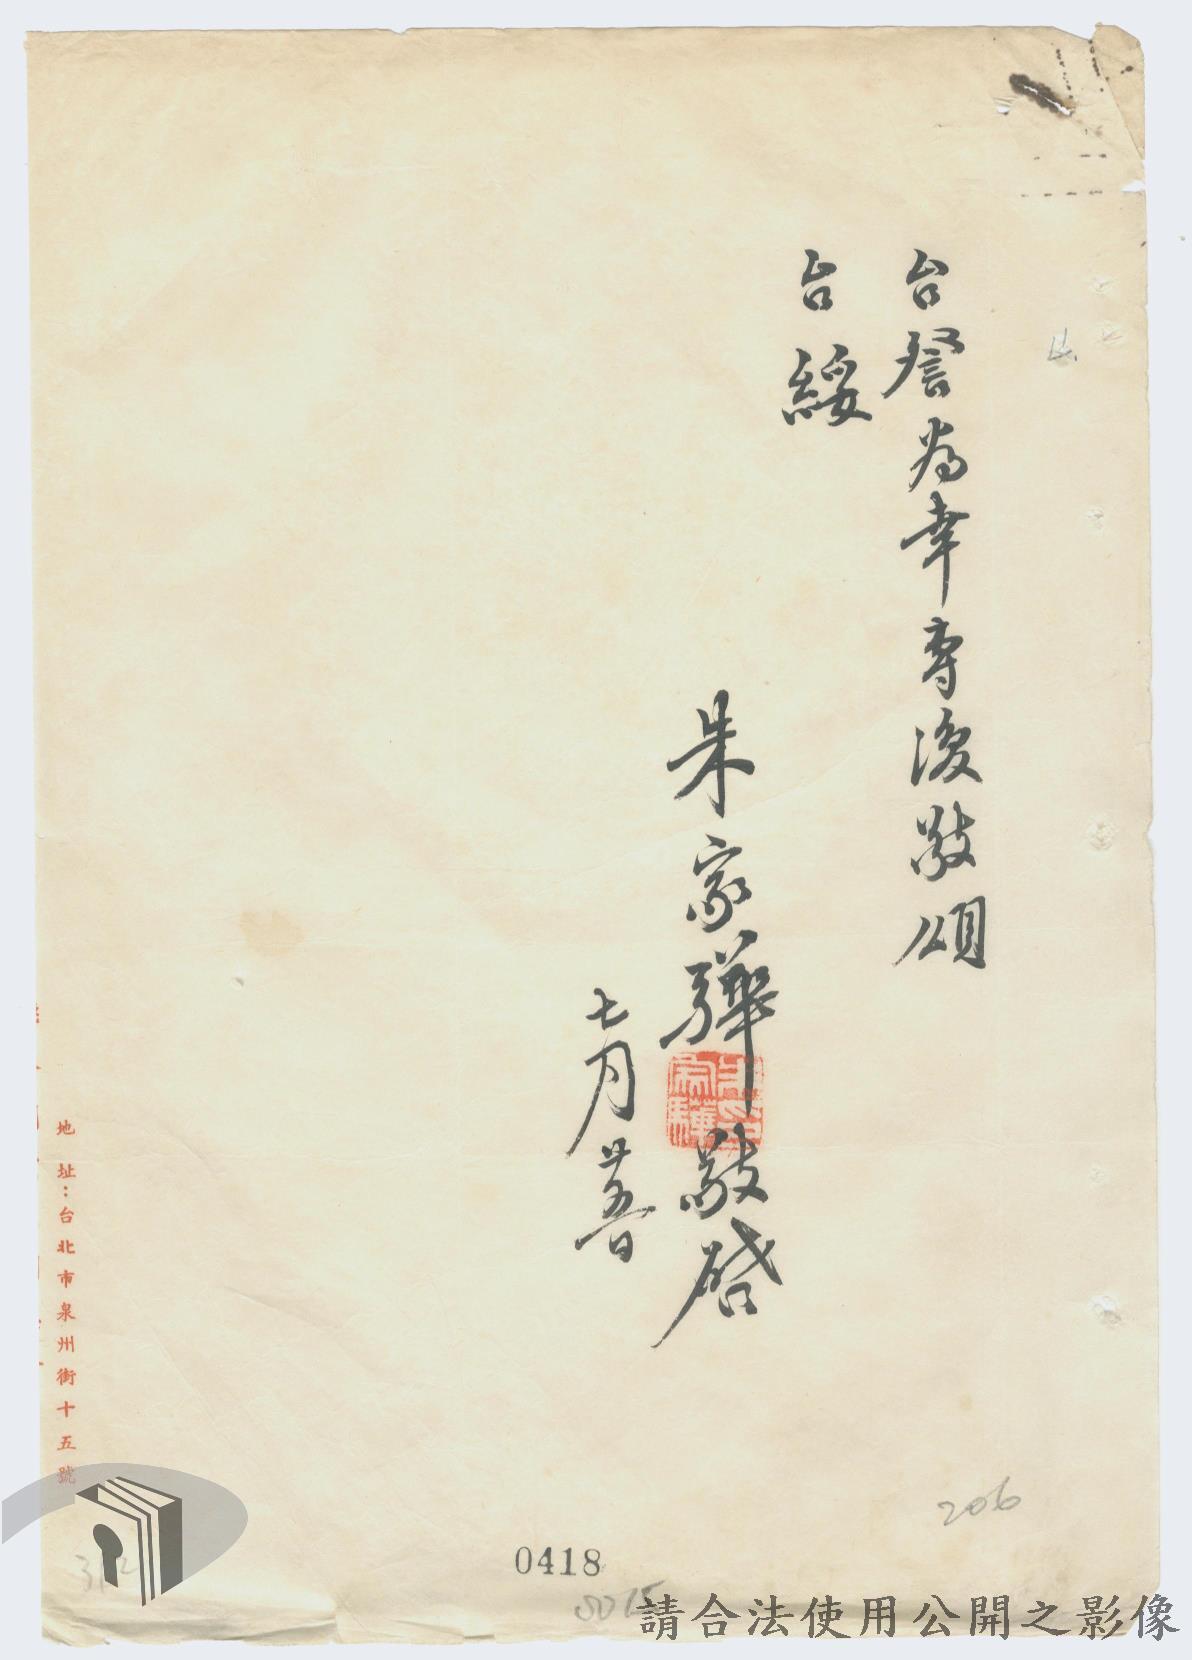 台詧為幸專復敬頌
台綏
朱家驊敬啓
七月廿五日
地址:台北市泉州街十五號
206
0418
請合法使用公開之影像